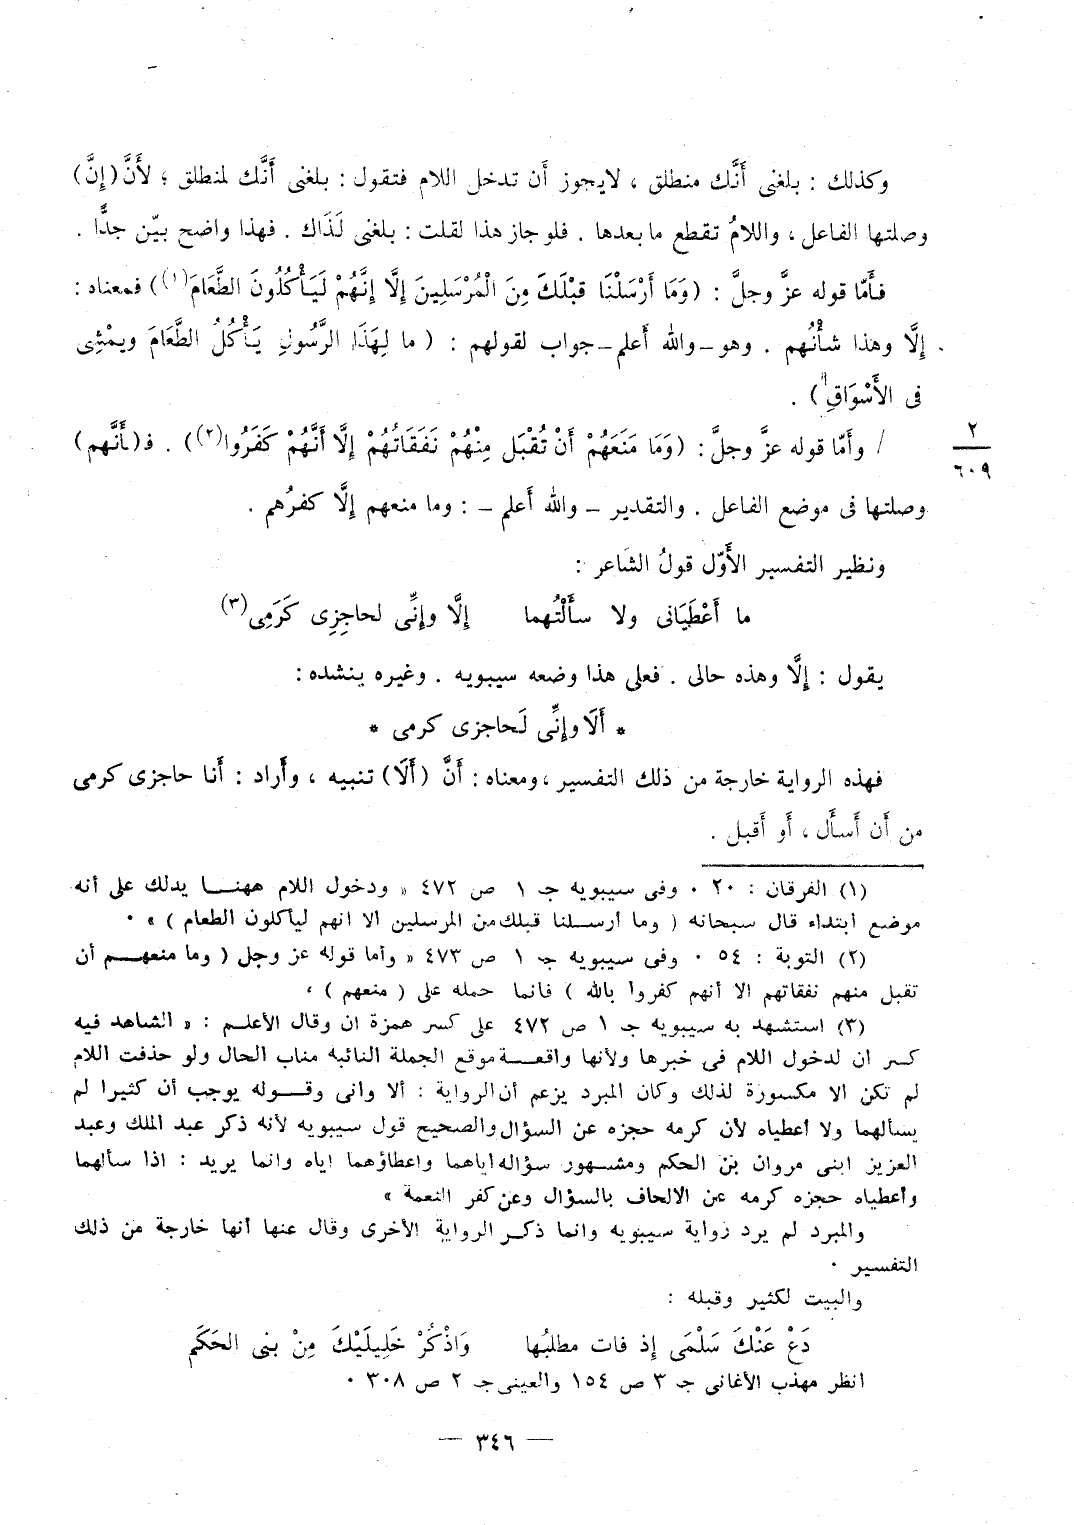 وكذلك : بلغنى أَنَّك منطلق ، لايجوز أَن تدخل اللام فتقول : بلغنى أَنَّك لمنطلق ؛ لأَنَّ (إِنَّ)
وصلتها الفاعل ، واللامُ تقطع مابعدها . فلو جاز هذا لقلت : بلغنى لَذَاك . فهذا واضح بيّن جدًّا .
فأَمّا قوله عزَّ وجلَّ : (وَمَا أَرْسَلْنَا قَبْلَكَ مِنَ الْمُرْسَلِينَ إِلَّا إِنَّهُمْ لَيَأْكُلُونَ الطَّعَامَ(١)) فمعناه :
إِلَّا وهذا شأْنُهم . وهو ــ والله أَعلم ــ جواب لقولهم : ( ما لِهَذَا الرَّسُولِ يَأْكُلُ الطَّعَامَ ويمْشِى
فى الأَسْوَاقِ ) .
/ وأَمّا قوله عزَّ وجلَّ : (وَمَا مَنَعَهُمْ أَنْ تُقْبَلَ مِنْهُمْ نَفَقَاتُهُمْ إِلَّا أَنَّهُمْ كَفَرُوا(٢)) . فـ(ـأَنَّهم)
٢
٦٠٩
وصلتها فى موضع الفاعل . والتقدير ــ والله أَعلم ــ : وما منعهم إِلَّا كفرُهم .
ونظير التفسير الأَوّل قولُ الشاعر :
ما أَعْطَيَانى ولا سأَلْتُهما إِلَّا وإِنِّى لحاجِزِى كَرَمِى(٣)
يقول : إِلَّا وهذه حالى . فعلى هذا وضعه سيبويه . وغيره ينشده :
* أَلَا وإِنِّى لَحاجزى كرمى *
فهذه الرواية خارجة من ذلك التفسير ، ومعناه : أَنَّ (أَلَا) تنبيه ، وأَراد : أَنا حاجزى كرمى
من أَن أَسأَل ، أَو أَقبل .
(١) الفرقان : ٢٠ . وفى سيبويه جـ ١ ص ٤٧٢ « ودخول اللام ههنا يدلك على أنه
موضع ابتداء قال سبحانه ( وما أرسلنا قبلك من المرسلين الا انهم ليأكلون الطعام ) » .
(٢) التوبة : ٥٤ . وفى سيبويه جـ ١ ص ٤٧٣ « وأما قوله عز وجل ( وما منعهم أن
تقبل منهم نفقاتهم الا أنهم كفروا بالله ) فانما حمله على ( منعهم ) ،
(٣) استشهد به سيبويه جـ ١ ص ٤٧٢ على كسر همزة ان وقال الأعلم : « الشاهد فيه
كسر ان لدخول اللام فى خبرها ولأنها واقعة موقع الجملة النائبة مناب الحال ولو حذفت اللام
لم تكن الا مكسورة لذلك وكان المبرد يزعم أن الرواية : ألا وانى وقوله يوجب أن كثيرا لم
يسألهما ولا أعطياه لأن كرمه حجزه عن السؤال والصحيح قول سيبويه لأنه ذكر عبد الملك وعبد
العزيز ابنى مروان بن الحكم ومشهور سؤاله أياهما واعطاؤهما اياه وانما يريد : اذا سألهما
وأعطياه حجزه كرمه عن الالحاف بالسؤال وعن كفر النعمة »
والمبرد لم يرد رواية سيبويه وانما ذكر الرواية الأخرى وقال عنها أنها خارجة من ذلك
التفسير .
والبيت لكثير وقبله :
دَعْ عَنْكَ سَلْمَى إِذ فات مطلبُها وَاذْكُرْ خَلِيلَيْكَ مِنْ بنى الحَكَم
انظر مهذب الأغانى جـ ٣ ص ١٥٤ والعينى جـ ٢ ص ٣٠٨ .
— ٣٤٦ —